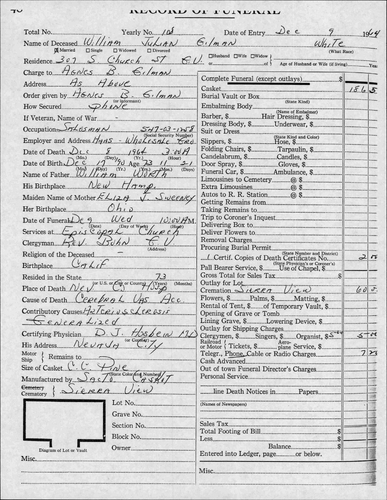 RECORD OF FUNERAL
Total No. Yearly No. 101 Date of Entry Dec 9 1964
Name of Deceased William Julian Gilman White
Married Single Widowed Divorced (What Race)
Residence 307 S Church St G.V. Husband Wife Widow
Charge to Agnes B. Gilman Age of Husband or Wife (if living) Yrs.
Address Above
Order given by Agnes B. Gilman
How Secured Phone
If Veteran, Name of War
Occupation Salesman
Employer and Address Wholesale Gro
Date of Death Dec 8 1964 3:00 A
Date of Birth Dec 17 '90 73 11 21
Name of Father William
His Birthplace New Hamp
Maiden Name of Mother Eliza J. Sweeney
Her Birthplace Ohio
Date of Funeral Dec Wed 10:00 AM
Services at Episcopal Church
Clergyman Rev. Buhn G.V.
Religion of the Deceased
Birthplace Calif
Resided in the State 73
Place of Death Nev Co Hosp
Cause of Death Cerebral Vas Acc.
Contributory Causes Arteriosclerosis
Generalized
Certifying Physician
His Address Nevada City
Motor Ship Remains to
Size of Casket Pine
Manufactured by Sacto Casket
Cemetery Sierra View
Crematory
Lot No.
Grave No.
Section No.
Block No.
Owner
Diagram of Lot or Vault
Misc.
Complete Funeral (except outlays) $
Casket
Burial Vault or Box
(State Kind)
Embalming Body
Barber, $ Hair Dressing, $
Dressing Body, $ Underwear, $
Suit or Dress
(State Kind and Color)
Slippers, $ Hose, $
Folding Chairs, $ Tarpaulin, $
Candelabrum, $ Candles, $
Door Spray, $ Gloves, $
Funeral Car, $ Ambulance, $
Limousines to Cemetery @ $
Extra Limousines @ $
Autos to R. R. Station @ $
Getting Remains from
Taking Remains to
Trip to Coroner's Inquest
Delivering Box to
Deliver Flowers to
Removal Charges
Procuring Burial Permit
(State Number and District)
1 Certif. Copies of Death Certificates No. 2
(State Physician's or Coroner's)
Pall Bearer Service, $ Use of Chapel, $
Gross Total for Sales Tax $
Outlay for Lot
Cremation Sierra View 60
Flowers, $ Palms, $ Matting, $
Rental of Tent, $ or Temporary Vault, $
Opening of Grave or Tomb
Lining Grave, $ Lowering Device, $
Outlay for Shipping Charges
Clergymen, $ Singers, $ Organist, $
Railroad or Motor Tickets, $ Aeroplane Service, $
Telegr., Phone, Cable or Radio Charges
Cash Advanced
Out of town Funeral Director's Charges
Personal Service
line Death Notices in Papers
(Names of Newspapers)
Sales Tax
Total Footing of Bill $
Less $
Balance $
Entered into Ledger, page or below.
Misc.